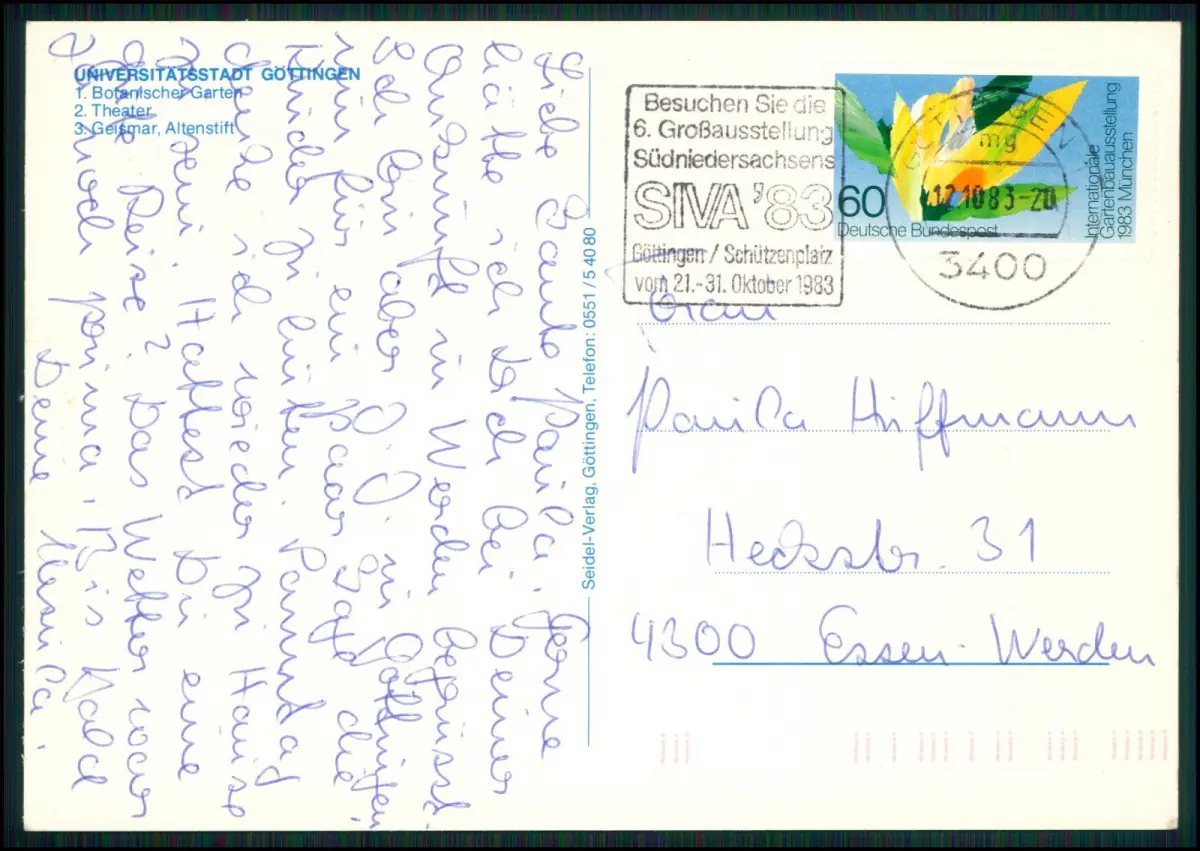 UNIVERSITÄTSSTADT GÖTTINGEN
1. Botanischer Garten
2. Theater
3. Geismar, Altenstift
Liebe Tante Paula, Gerne
hätte ich Dich bei Deiner
Ankunft in Werden begrüsst.
Ich bin aber z. Z. in Göttingen,
um für ein paar Tage die
Kinder zu hüten. Samstag
werde ich wieder zu Hause
sein. Hattest Du eine
gute Reise? Das Wetter war
ja noch prima. Bis bald
Deine
Seidel-Verlag, Göttingen, Telefon: 0551/54080
Besuchen Sie die
6. Großausstellung
Südniedersachsens
SIVA '83
Göttingen / Schützenplatz
vom 21.-31. Oktober 1983
60
Deutsche Bundespost
Internationale
Gartenbauausstellung
1983 München
GÖTTINGEN
mg
12.10.83-20
3400
Frau
Paula Hüffmann
Heckstr. 31
4300 Essen-Werden